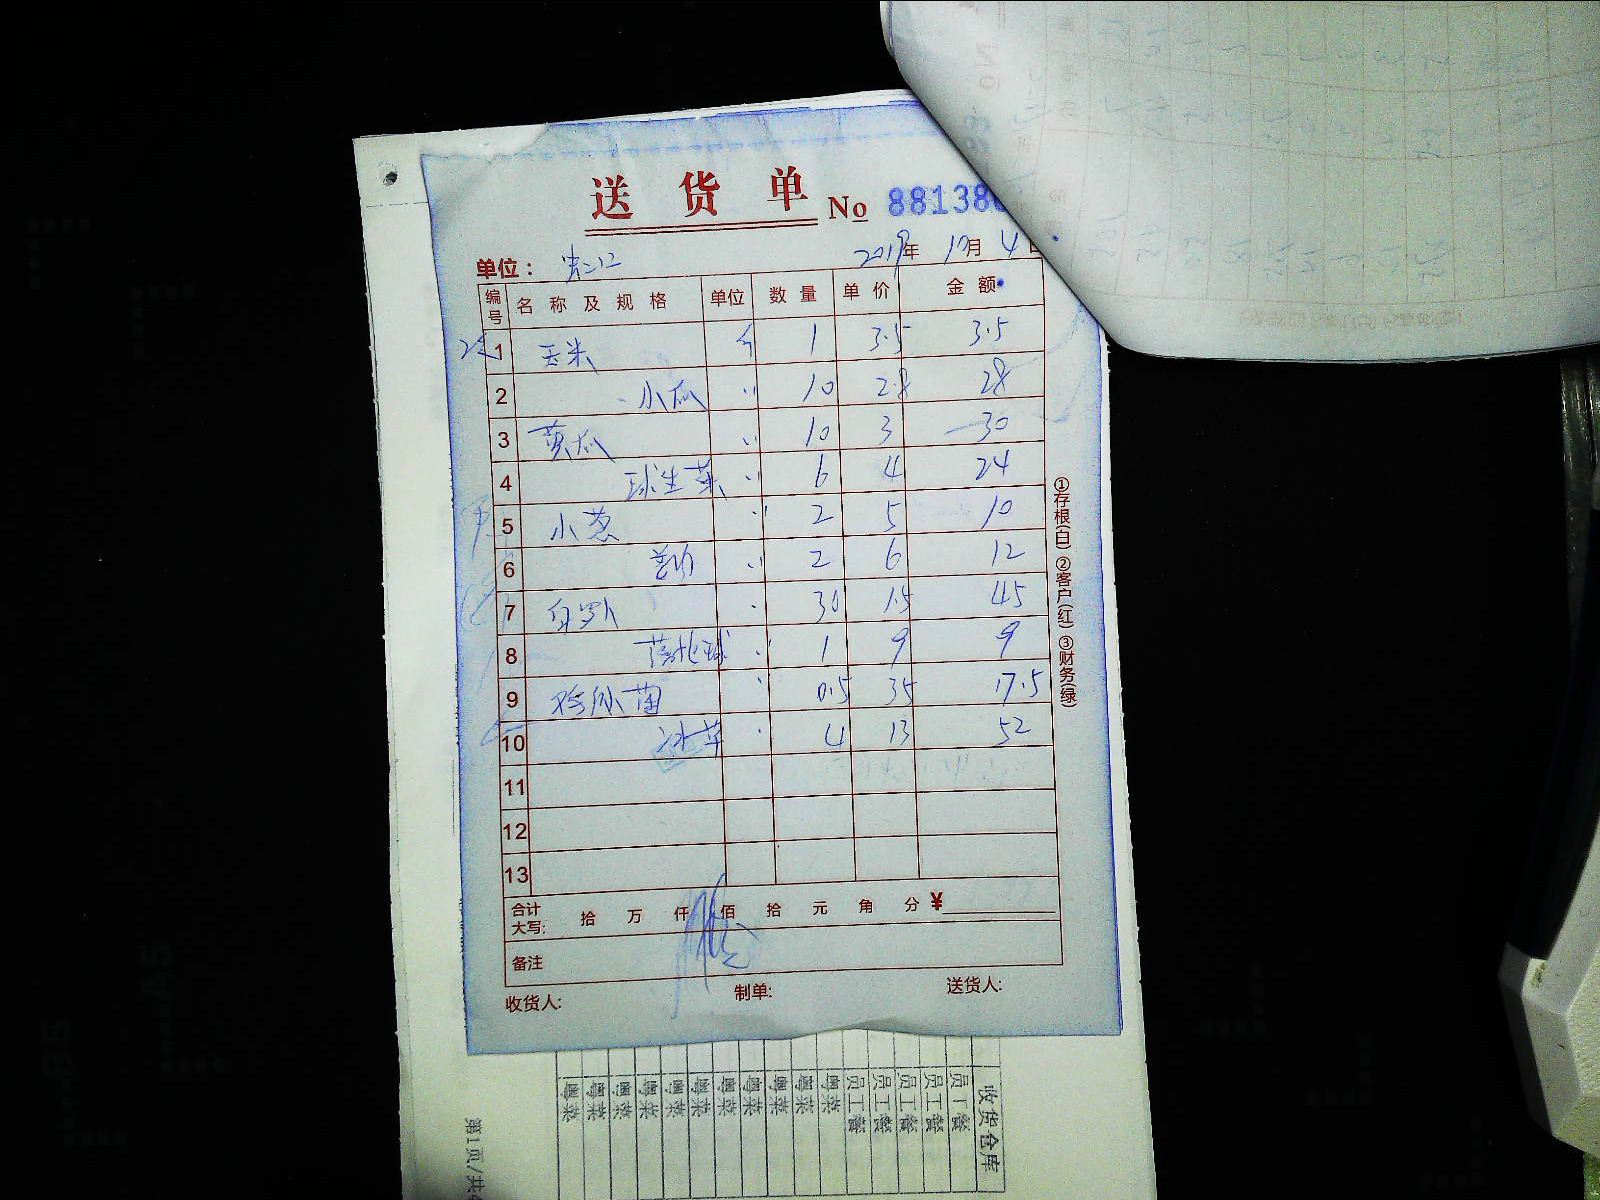 送货单 No 88138
单位： 2019年 10月 4日
编号 名称及规格 单位 数量 单价 金额
1 玉米 斤 1 3.5 3.5
2 小瓜 〃 10 2.8 28
3 黄瓜 〃 10 3 30
4 球生菜 〃 6 4 24
5 小葱 〃 2 5 10
6 〃 2 6 12
7 白罗卜 〃 30 1.5 45
8 〃 1 9 9
9 〃 0.5 35 17.5
10 冰草 〃 4 13 52
11
12
13
合计大写: 拾 万 仟 佰 拾 元 角 分 ¥
备注
收货人: 制单: 送货人:
①存根(白) ②客户(红) ③财务(绿)
收货仓库
员工餐
员工餐
员工餐
员工餐
员工餐
粤菜
粤菜
粤菜
粤菜
粤菜
粤菜
粤菜
粤菜
粤菜
粤菜
粤菜
第1页/共